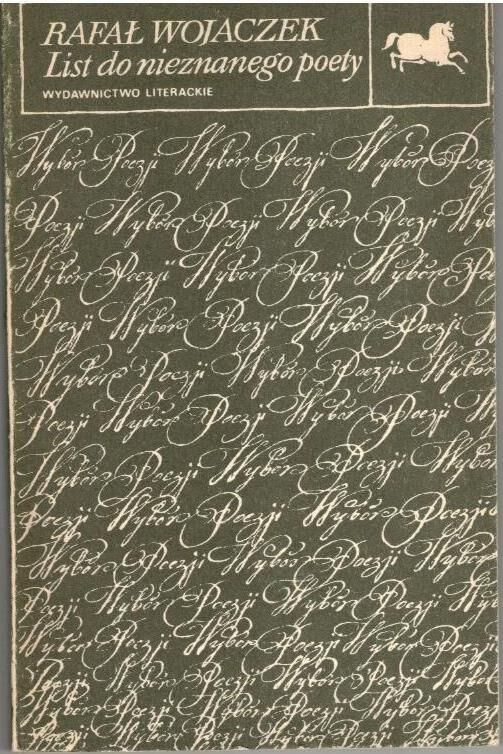 RAFAŁ WOJACZEK
List do nieznanego poety
WYDAWNICTWO LITERACKIE
Wybór Poezji Wybór Poezji Wybór Poezj
Poezji Wybór Poezji Wybór Poezji Wyb
Wybór Poezji Wybór Poezji Wybór Poe
Poezji Wybór Poezji Wybór Poezji W
Wybór Poezji Wybór Poezji Wybór
Poezji Wybór Poezji Wybór Poezji W
Wybór Poezji Wybór Poezji Wybór
Poezji Wybór Poezji Wybór Poezji
Wybór Poezji Wybór Poezji Wybór
Poezji Wybór Poezji Wybór Poezji Wyb
Wybór Poezji Wybór Poezji Wybór Poezji
Poezji Wybór Poezji Wybór Poezji Wybór
Wybór Poezji Wybór Poezji Wybór Poezji
Poezji Wybór Poezji Wybór Poezji Wybór